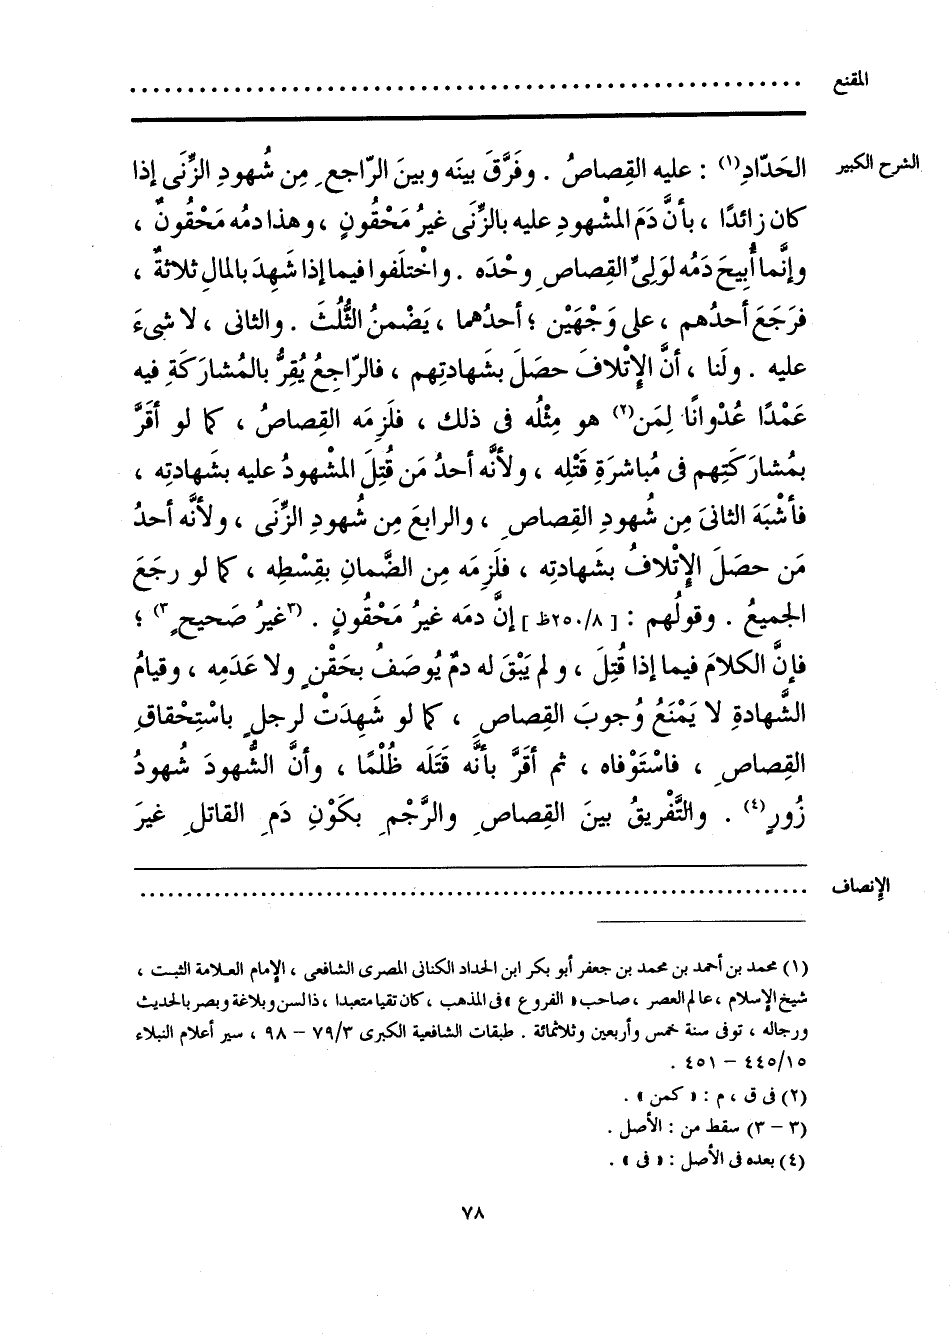 المقنع ..........................................................
الشرح الكبير الحَدّادِ(١) : عليه القِصاصُ . وفَرَّقَ بينَه وبينَ الرّاجعِ مِن شُهودِ الزِّنَى إذا
كان زائدًا ، بأنَّ دَمَ المَشْهودِ عليه بالزِّنَى غيرُ مَحْقُونٍ ، وهذا دمُه مَحْقُونٌ ،
وإنَّما أُبِيحَ دَمُه لوَلِىِّ القِصاصِ وحْدَه . واخْتلَفوا فيما إذا شَهِدَ بالمالِ ثلاثةٌ ،
فرَجَعَ أحدُهم ، على وَجْهَيْن ؛ أحدُهما ، يَضْمنُ الثُّلُثَ . والثانى ، لا شىءَ
عليه . ولَنا ، أنَّ الإِتْلافَ حصَلَ بشَهادتِهم ، فالرّاجعُ يُقِرُّ بالمُشارَكَةِ فيه
عَمْدًا عُدْوانًا لِمَن(٢) هو مِثْلُه فى ذلك ، فلَزِمَه القِصاصُ ، كما لو أقَرَّ
بمُشارَكَتِهم فى مُباشرَةِ قَتْلِه ، ولأنَّه أحدُ مَن قُتِلَ المَشْهودُ عليه بشَهادتِه ،
فأشْبَهَ الثانىَ مِن شُهودِ القِصاصِ ، والرابعَ مِن شُهودِ الزِّنَى ، ولأنَّه أحدُ
مَن حصَلَ الإِتْلافُ بشَهادتِه ، فلَزِمَه مِن الضَّمانِ بقِسْطِه ، كما لو رجَعَ
الجميعُ . وقولُهم : [ ٢٥٠/٨ظ ] إنَّ دمَه غيرُ مَحْقُونٍ . (٣غيرُ صَحيحٍ٣) ؛
فإنَّ الكلامَ فيما إذا قُتِلَ ، ولم يَبْقَ له دمٌ يُوصَفُ بحَقْنٍ ولا عَدَمِه ، وقيامُ
الشَّهادةِ لا يَمْنَعُ وُجوبَ القِصاصِ ، كما لو شَهِدَتْ لرجلٍ باسْتِحْقاقِ
القِصاصِ ، فاسْتَوْفاه ، ثم أقَرَّ بأنَّه قَتَلَه ظُلْمًا ، وأنَّ الشُّهودَ شُهودُ
زُورٍ(٤) . والتَّفْريقُ بينَ القِصاصِ والرَّجْمِ بكَوْنِ دَمِ القاتلِ غيرَ
الإنصاف ..........................................................
(١) محمد بن أحمد بن محمد بن جعفر أبو بكر ابن الحداد الكنانى المصرى الشافعى ، الإمام العلامة الثبت ،
شيخ الإسلام ، عالم العصر ، صاحب « الفروع » فى المذهب ، كان تقيا متعبدا ، ذا لسن وبلاغة وبصر بالحديث
ورجاله ، توفى سنة خمس وأربعين وثلاثمائة . طبقات الشافعية الكبرى ٧٩/٣ – ٩٨ ، سير أعلام النبلاء
٤٤٥/١٥ – ٤٥١ .
(٢) فى ق ، م : « كمن » .
(٣ – ٣) سقط من : الأصل .
(٤) بعده فى الأصل : « فى » .
٧٨